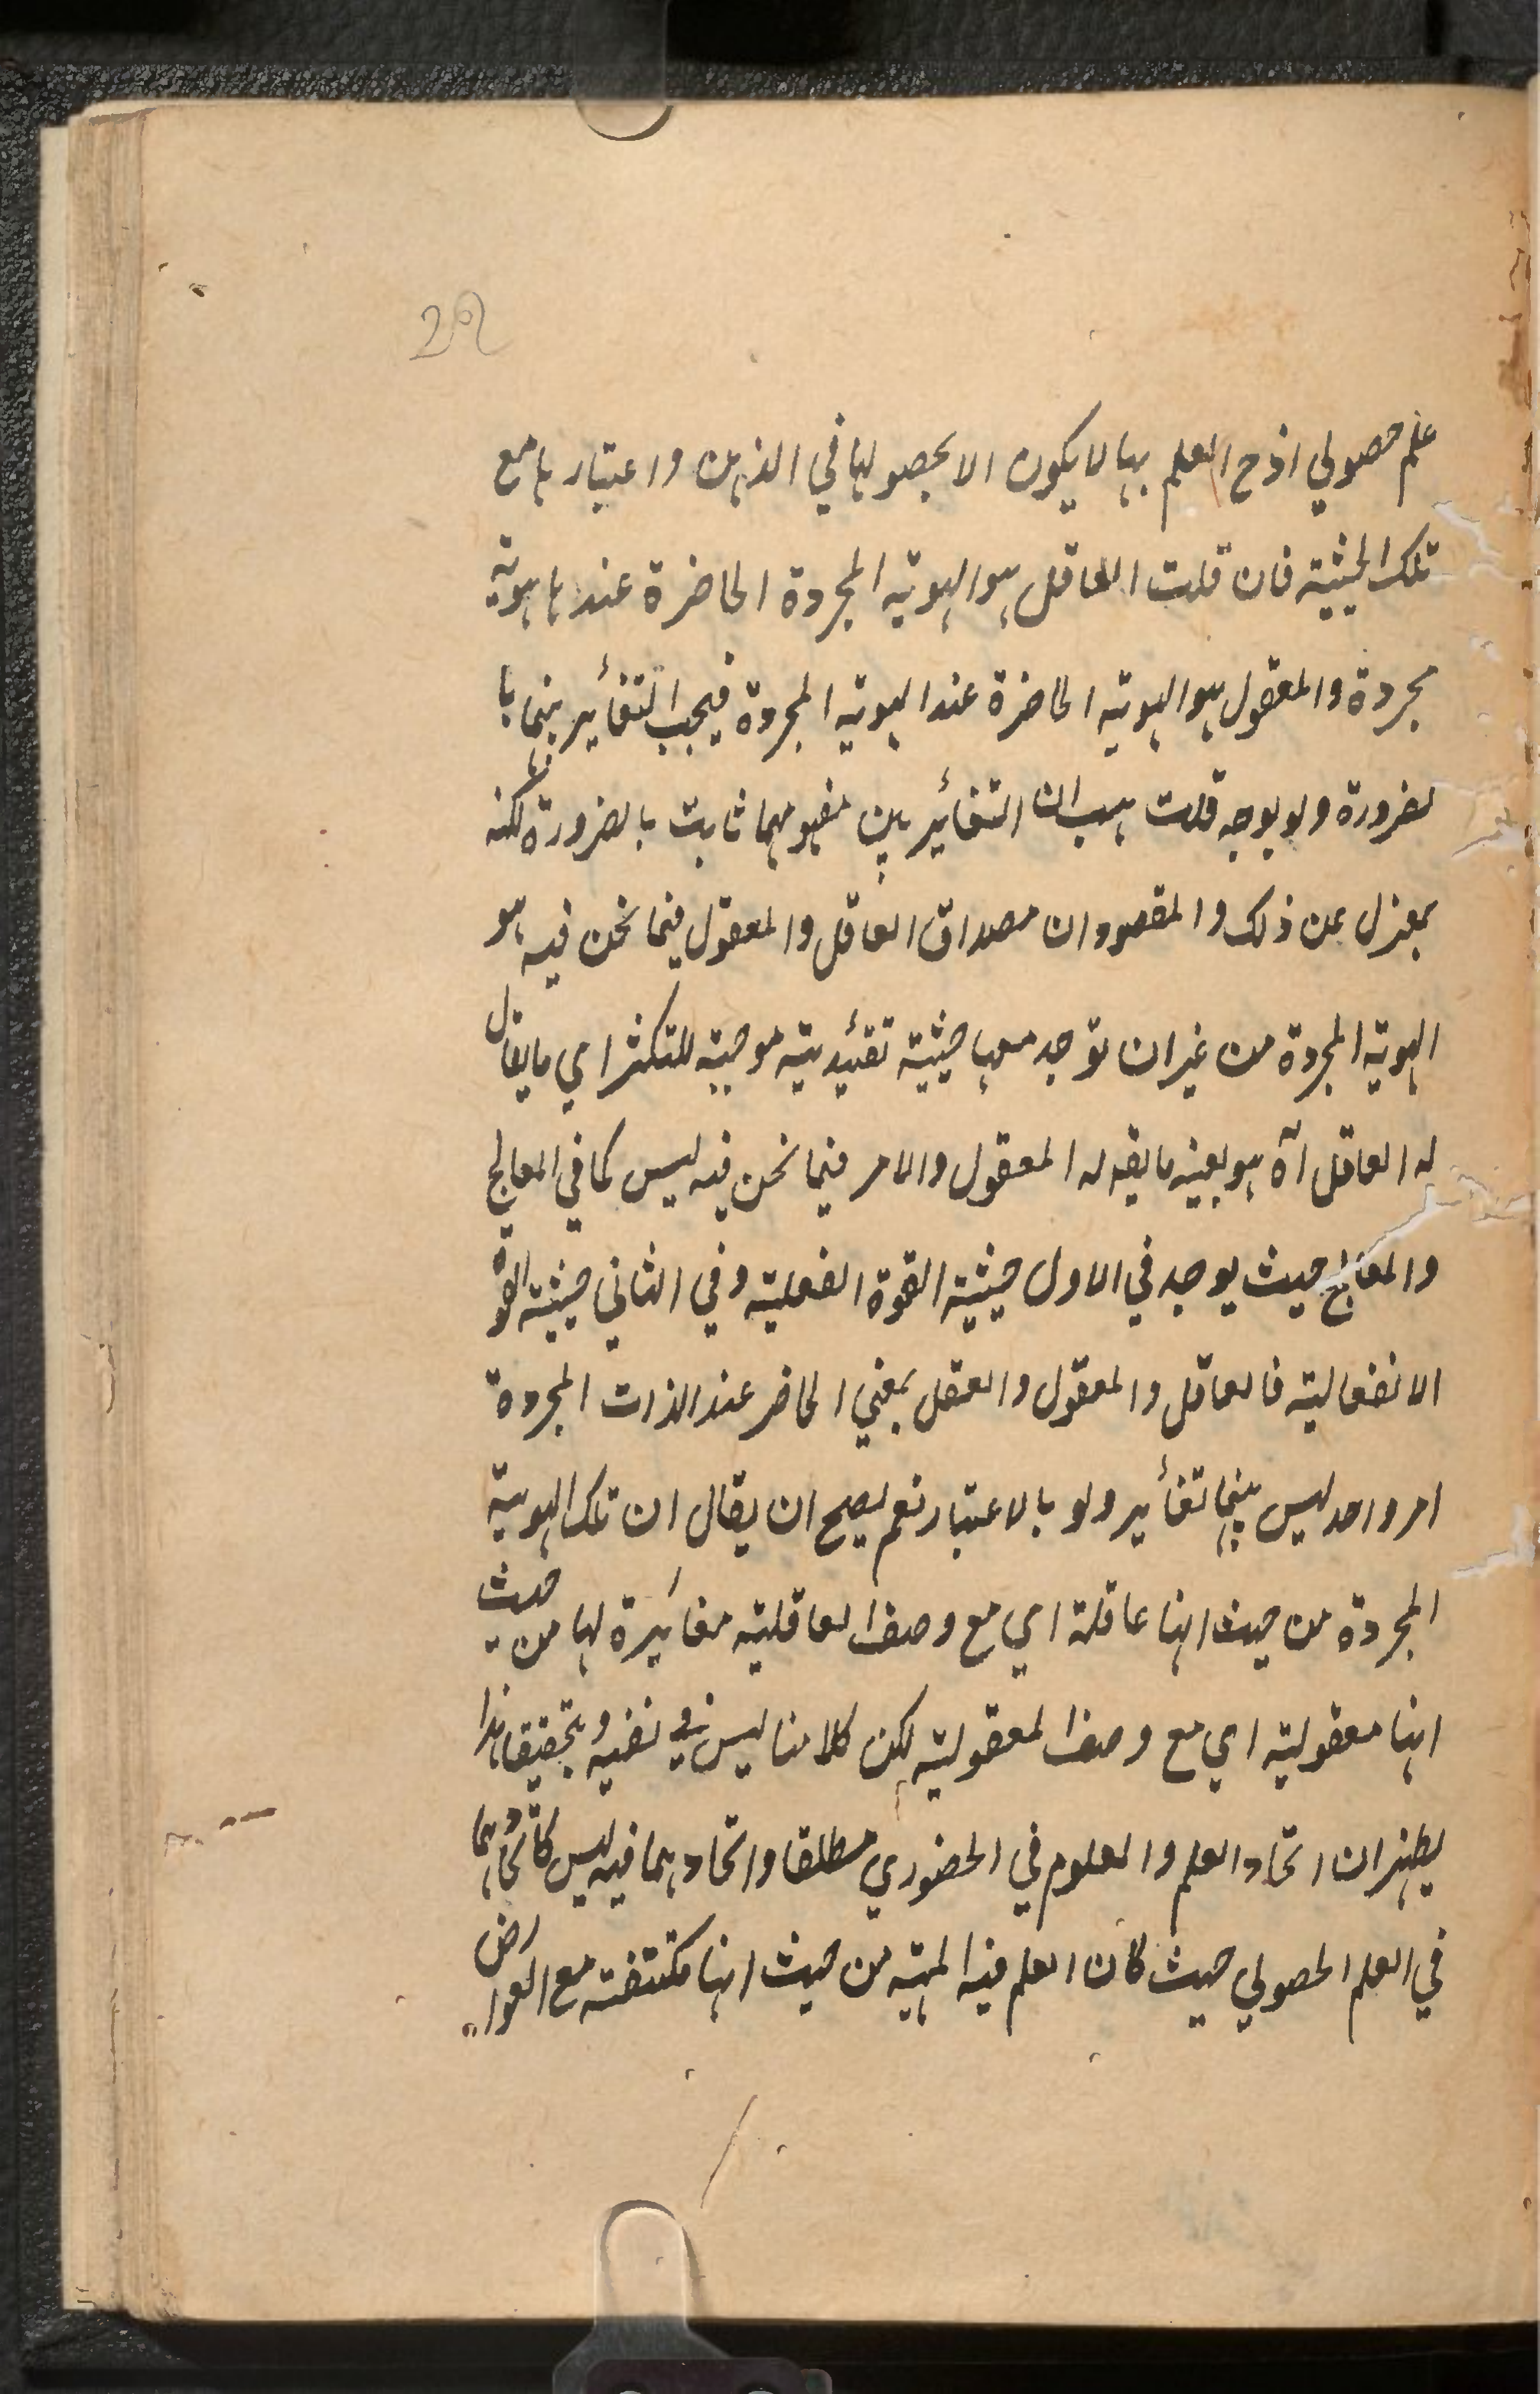 29
علم حصولي اذ ح العلم بها لا يكون الا بحصولها في الذهن واعتبارها مع
تلك الحيثية فان قلت العاقل هو الهوية المجردة الحاضرة عندها هوية
مجردة والمعقول هو الهوية الحاضرة عند الهوية المجردة فيجب التغأير بينهما با
لضرورة ولو بوجه قلت هب ان التغأير بين مفهوميهما ثابت بالضرورة لكنه
بمعزل عن ذلك والمقصود ان مصداق العاقل والمعقول فيما نحن فيه هو
الهوية المجردة من غير ان توجد معها حيثية تقئيدية موجبة للتكثر اي ما يقال
له العاقل آه هو بعينه ما يقه له المعقول والامر فيما نحن فيه ليس كما في المعالج
والمعالج حيث يوجد في الاول حيثية القوة الفعلية وفي الثاني حيثية القوة
الانفعالية فالعاقل والمعقول والعقل بمعني الحاضر عند الذات المجردة
امر واحد ليس بينهما تغأير ولو بالاعتبار نعم يصح ان يقال ان تلك الهوية
المجردة من حيث انها عاقلة اي مع وصف العاقلية مغأيرة لها من حيث
انها معقولية اي مع وصف المعقولية لكن كلامنا ليس في نفيه وبتحقيقنا هذا
يظهر ان اتحاد العلم والمعلوم في الحضوري مطلقا واتحادهما فيه ليس كاتحادهما
في العلم الحصولي حيث كان العلم فيه المهية من حيث انها مكتنفة مع العوارض